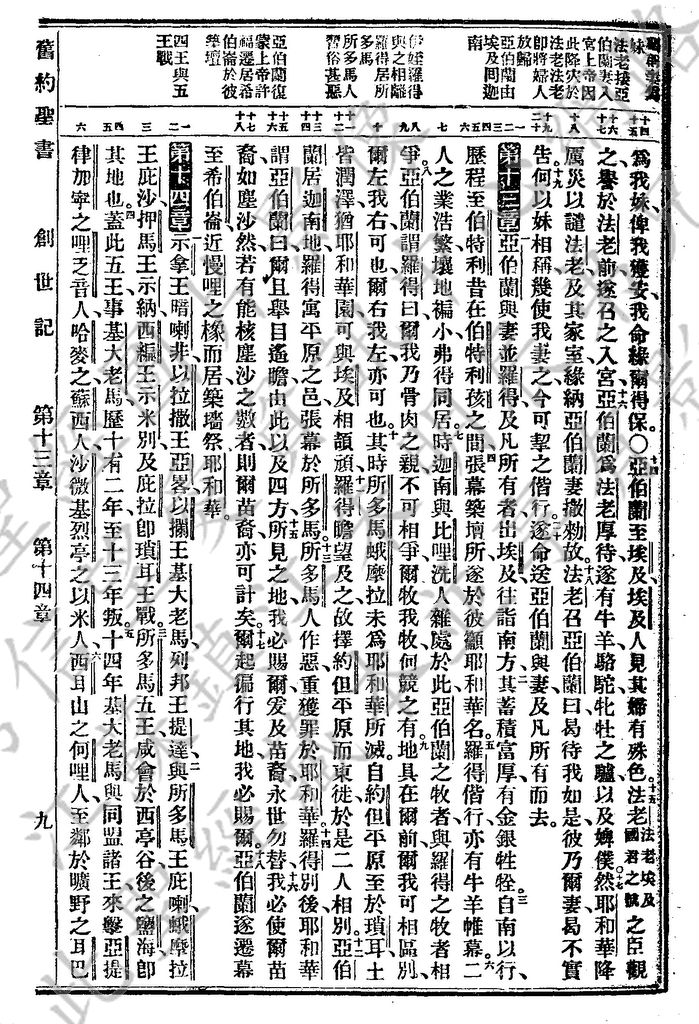 爲我妹俾我獲安我命緣爾得保〇亞伯蘭至埃及埃及人見其婦有殊色法老法老埃及國君之號之臣觀
之譽於法老前遂召之入宮亞伯蘭爲法老厚待遂有牛羊駱駝牝牡之驢以及婢僕然耶和華降
厲災以譴法老及其家室緣納亞伯蘭妻撒勑故法老召亞伯蘭曰曷待我如是彼乃爾妻曷不實
告何以妹相稱幾使我妻之今可挈之偕行遂命送亞伯蘭與妻及凡所有而去
第十三章亞伯蘭與妻並羅得及凡所有者出埃及往詣南方其蓄積富厚有金銀牲牷自南以行
歷程至伯特利昔在伯特利孩之間張幕築壇所遂於彼顲耶和華名羅得偕行亦有牛羊帷幕二
人之業浩繁壤地褊小弗得同居時迦南與比哩洗人雜處於此亞伯蘭之牧者與羅得之牧者相
爭亞伯蘭謂羅得曰爾我乃骨肉之親不可相爭爾牧我牧何競之有地具在爾前爾我可相區別
爾左我右可也爾右我左亦可也其時所多馬蛾摩拉未爲耶和華所滅自約但平原至於瑣耳土
皆潤澤猶耶和華園可與埃及相頡頏羅得瞻望及之故擇約但平原而東徙於是二人相別亞伯
蘭居迦南地羅得寓平原之邑張幕於所多馬所多馬人作惡重獲罪於耶和華羅得別後耶和華
謂亞伯蘭曰爾且舉目遙瞻由此以及四方所見之地我必賜爾爰及苗裔永世勿替我必使爾苗
裔如塵沙然若有能核塵沙之數者則爾苗裔亦可計矣爾起徧行其地我必賜爾亞伯蘭遂遷幕
至希伯崙近幔哩之橡而居築壇祭耶和華
第十四章示拿王暗喇非以拉撒王亞畧以攔王基大老馬列邦王提達與所多馬王庇喇蛾摩拉
王庇沙押馬王示納西編王示米別及庇拉卽瑣耳王戰所多馬五王咸會於西亭谷後之鹽海卽
其地也蓋此五王事基大老馬歷十有二年至十三年叛十四年基大老馬與同盟諸王來擊亞提
律加寧之哩乏音人哈麥之蘇西人沙微基烈亭之以米人西耳山之何哩人至鄰於曠野之耳巴
法老接亞
伯蘭妻入
宮上帝因
此降災於
法老法老
卽將婦人
放歸
亞伯蘭由
埃及回迦
南
羅得居所
所多馬人
習俗甚惡
亞伯蘭復
蒙上帝許
福遷居希
伯崙於彼
築壇
四王與五
王戰
舊約聖書 創世記 第十三章 第十四章 九